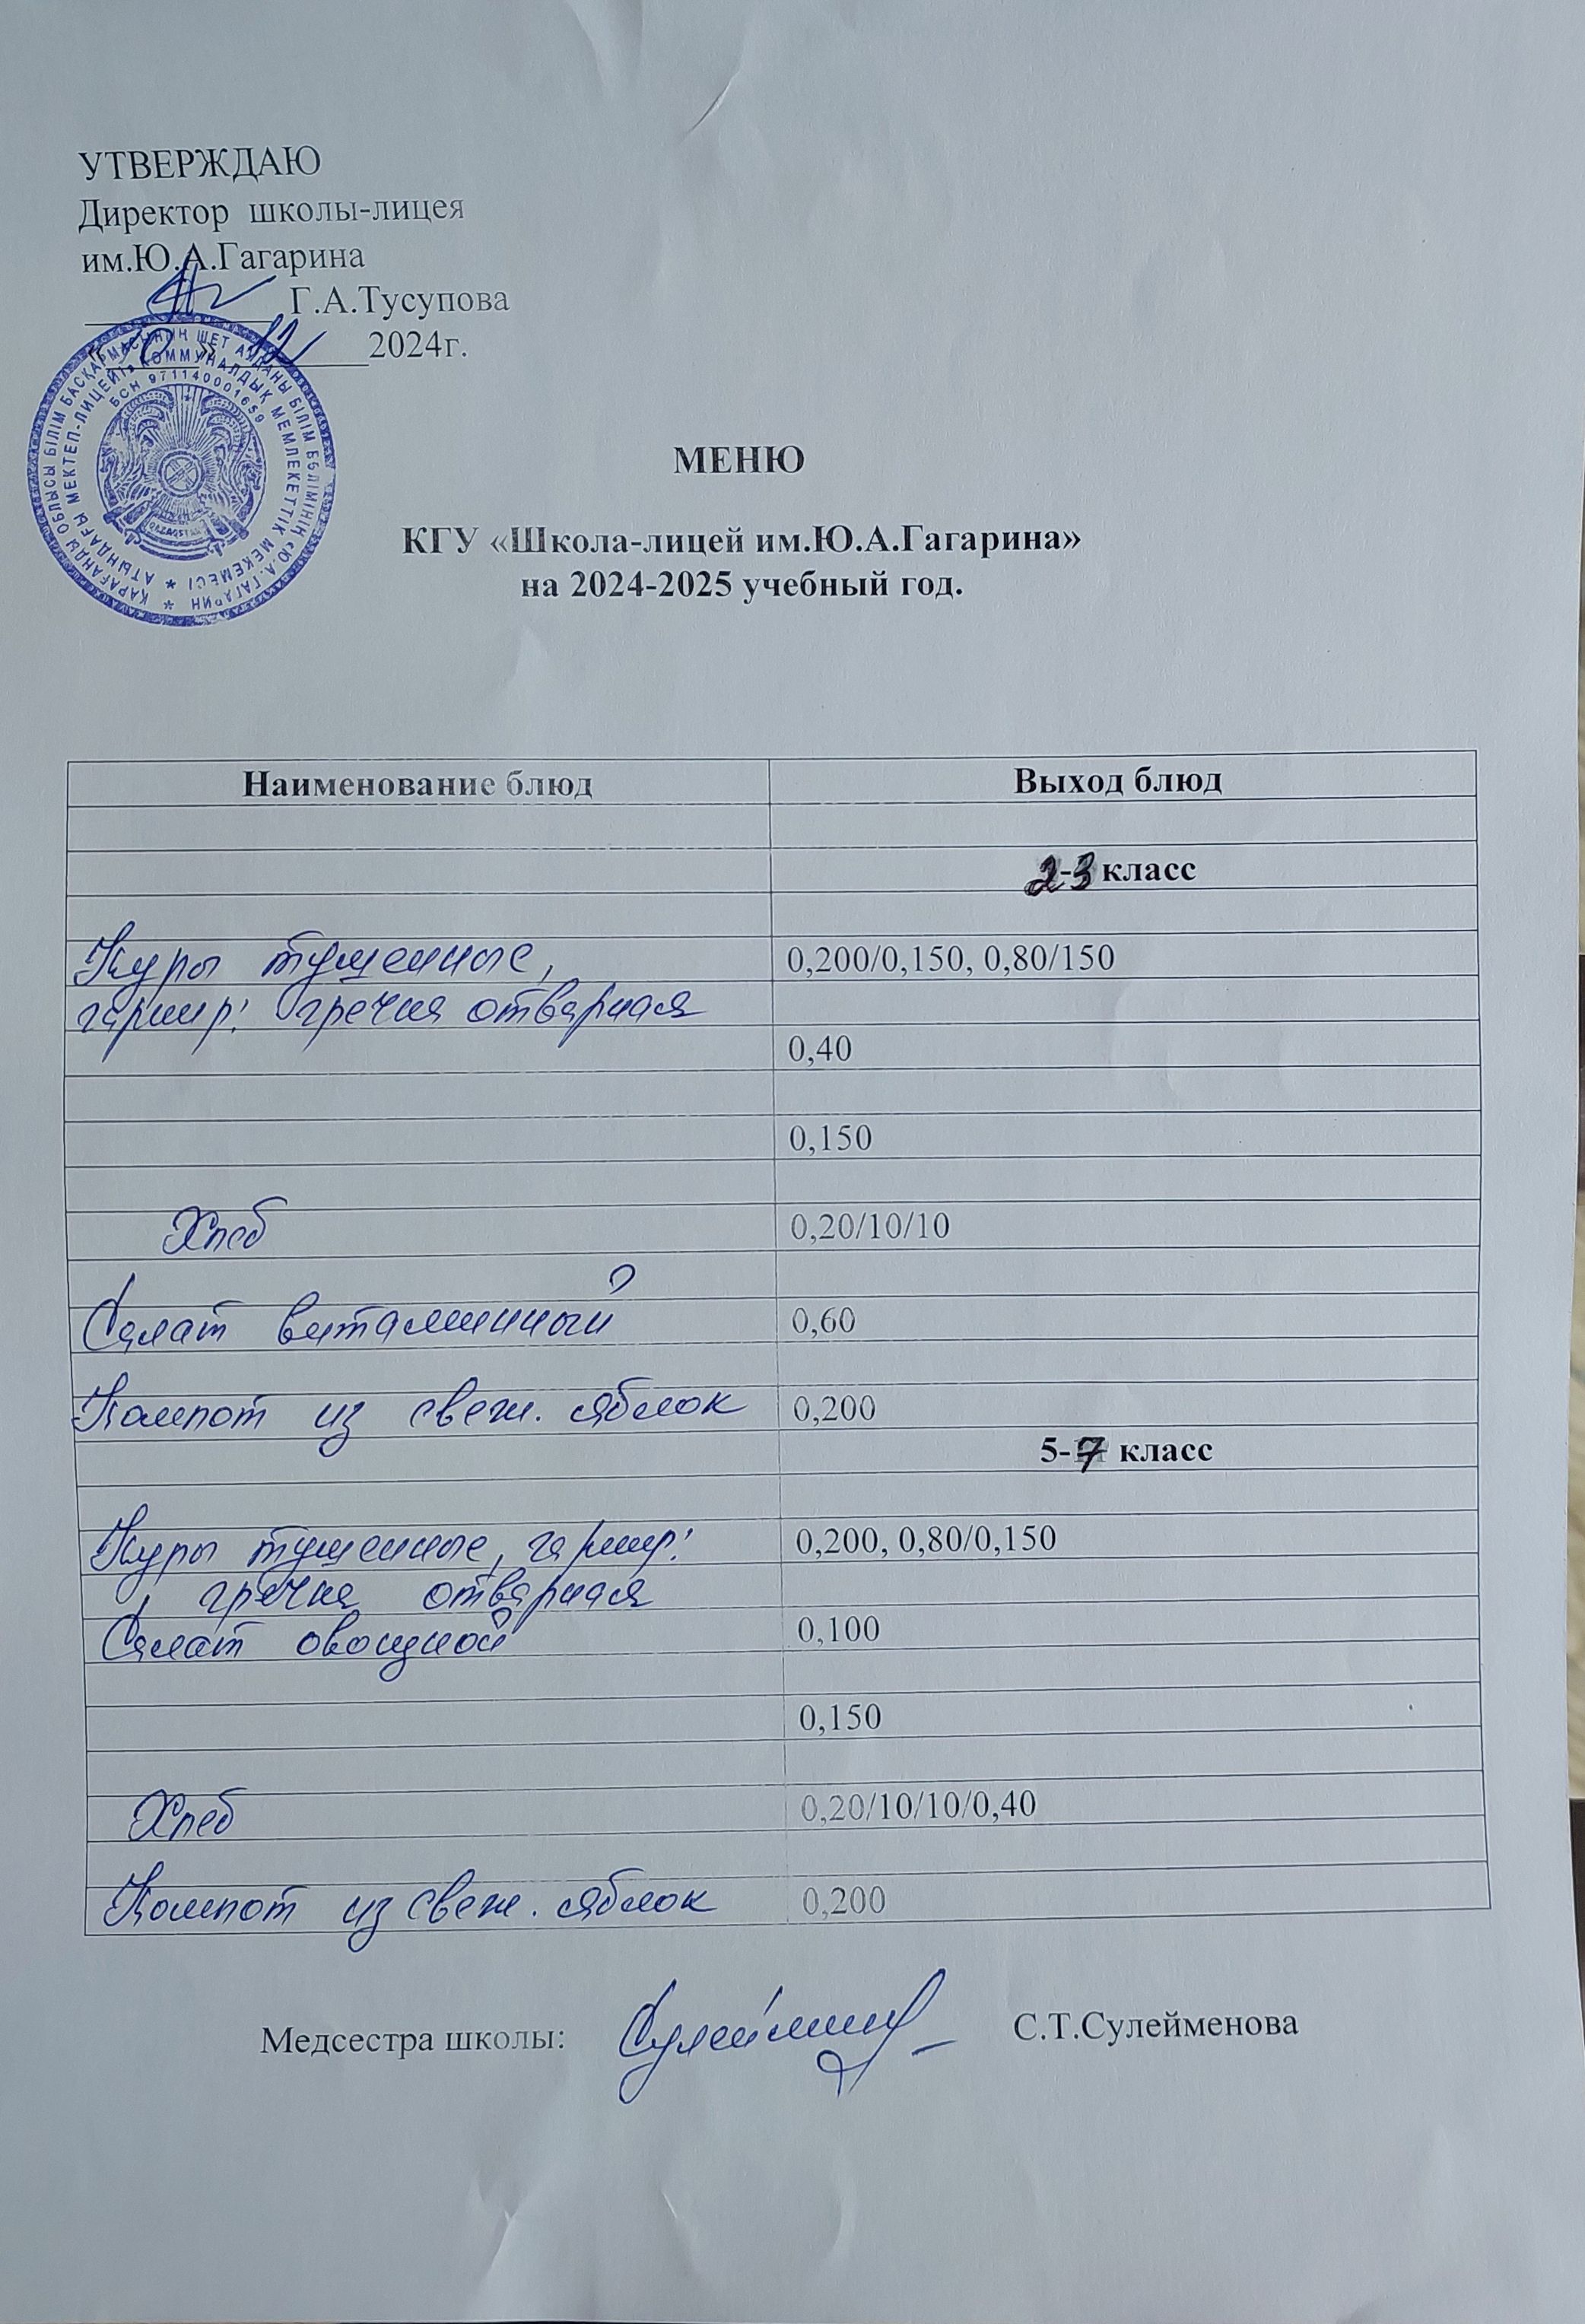 УТВЕРЖДАЮ
Директор школы-лицея
им.Ю.А.Гагарина
Г.А.Тусупова
«10» 12 2024г.
ҚАРАҒАНДЫ ОБЛЫСЫ БІЛІМ БАСҚАРМАСЫНЫҢ ШЕТ АУДАНЫ БІЛІМ БӨЛІМІНІҢ «Ю.А. ГАГАРИН
АТЫНДАҒЫ МЕКТЕП-ЛИЦЕЙІ» КОММУНАЛДЫҚ МЕМЛЕКЕТТІК МЕКЕМЕСІ
БСН 971140001659
QAZAQSTAN
МЕНЮ
КГУ «Школа-лицей им.Ю.А.Гагарина»
на 2024-2025 учебный год.
Наименование блюд Выход блюд
2-3 класс
Куры тушенные, 0,200/0,150, 0,80/150
гарнир: гречка отварная
0,40
0,150
Хлеб 0,20/10/10
Салат витаминный 0,60
Компот из свеж. яблок 0,200
5-7 класс
Куры тушенные, гарнир: 0,200, 0,80/0,150
гречка отварная
Салат овощной 0,100
0,150
Хлеб 0,20/10/10/0,40
Компот из свеж. яблок 0,200
Медсестра школы: С.Т.Сулейменова